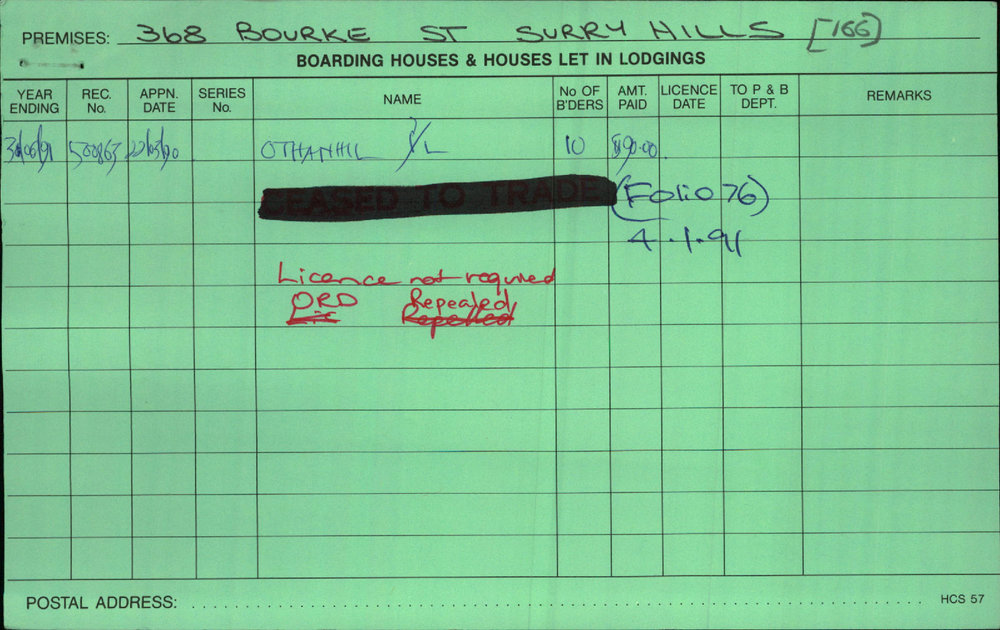 PREMISES: 368 BOURKE ST SURRY HILLS [166]
BOARDING HOUSES & HOUSES LET IN LODGINGS
YEAR ENDING REC. No. APPN. DATE SERIES No. NAME No OF B'DERS AMT. PAID LICENCE DATE TO P & B DEPT. REMARKS
30/06/91 500863 OTHANHIL P/L 10 $90.00
CEASED TO TRADE (Folio 76)
4.1.91
Licence not required
ORD Repealed
Lic Repelled
POSTAL ADDRESS:
HCS 57